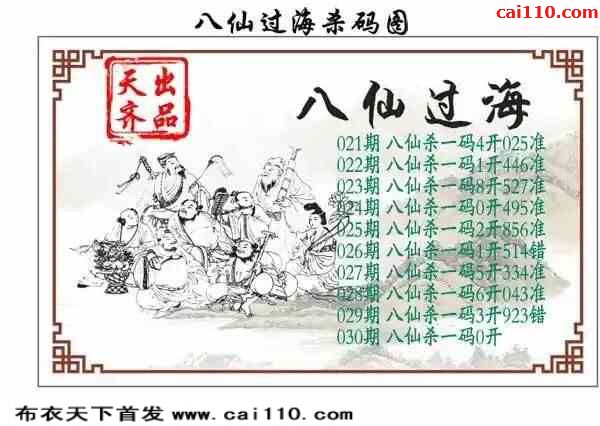 八仙过海杀码图
cai110.com
天齐出品
八仙过海
021期 八仙杀一码4开025准
022期 八仙杀一码1开446准
023期 八仙杀一码8开527准
024期 八仙杀一码0开495准
025期 八仙杀一码2开856准
026期 八仙杀一码1开514错
027期 八仙杀一码5开334准
028期 八仙杀一码6开043准
029期 八仙杀一码3开923错
030期 八仙杀一码0开
布衣天下首发 www.cai110.com